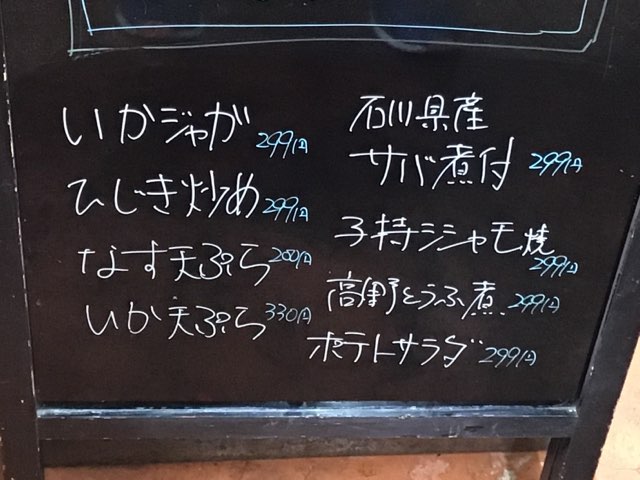 いかジャガ 299円
ひじき炒め 299円
なす天ぷら 280円
いか天ぷら 330円
石川県産
サバ煮付 299円
子持シシャモ焼 299円
高野とうふ煮 299円
ポテトサラダ 299円